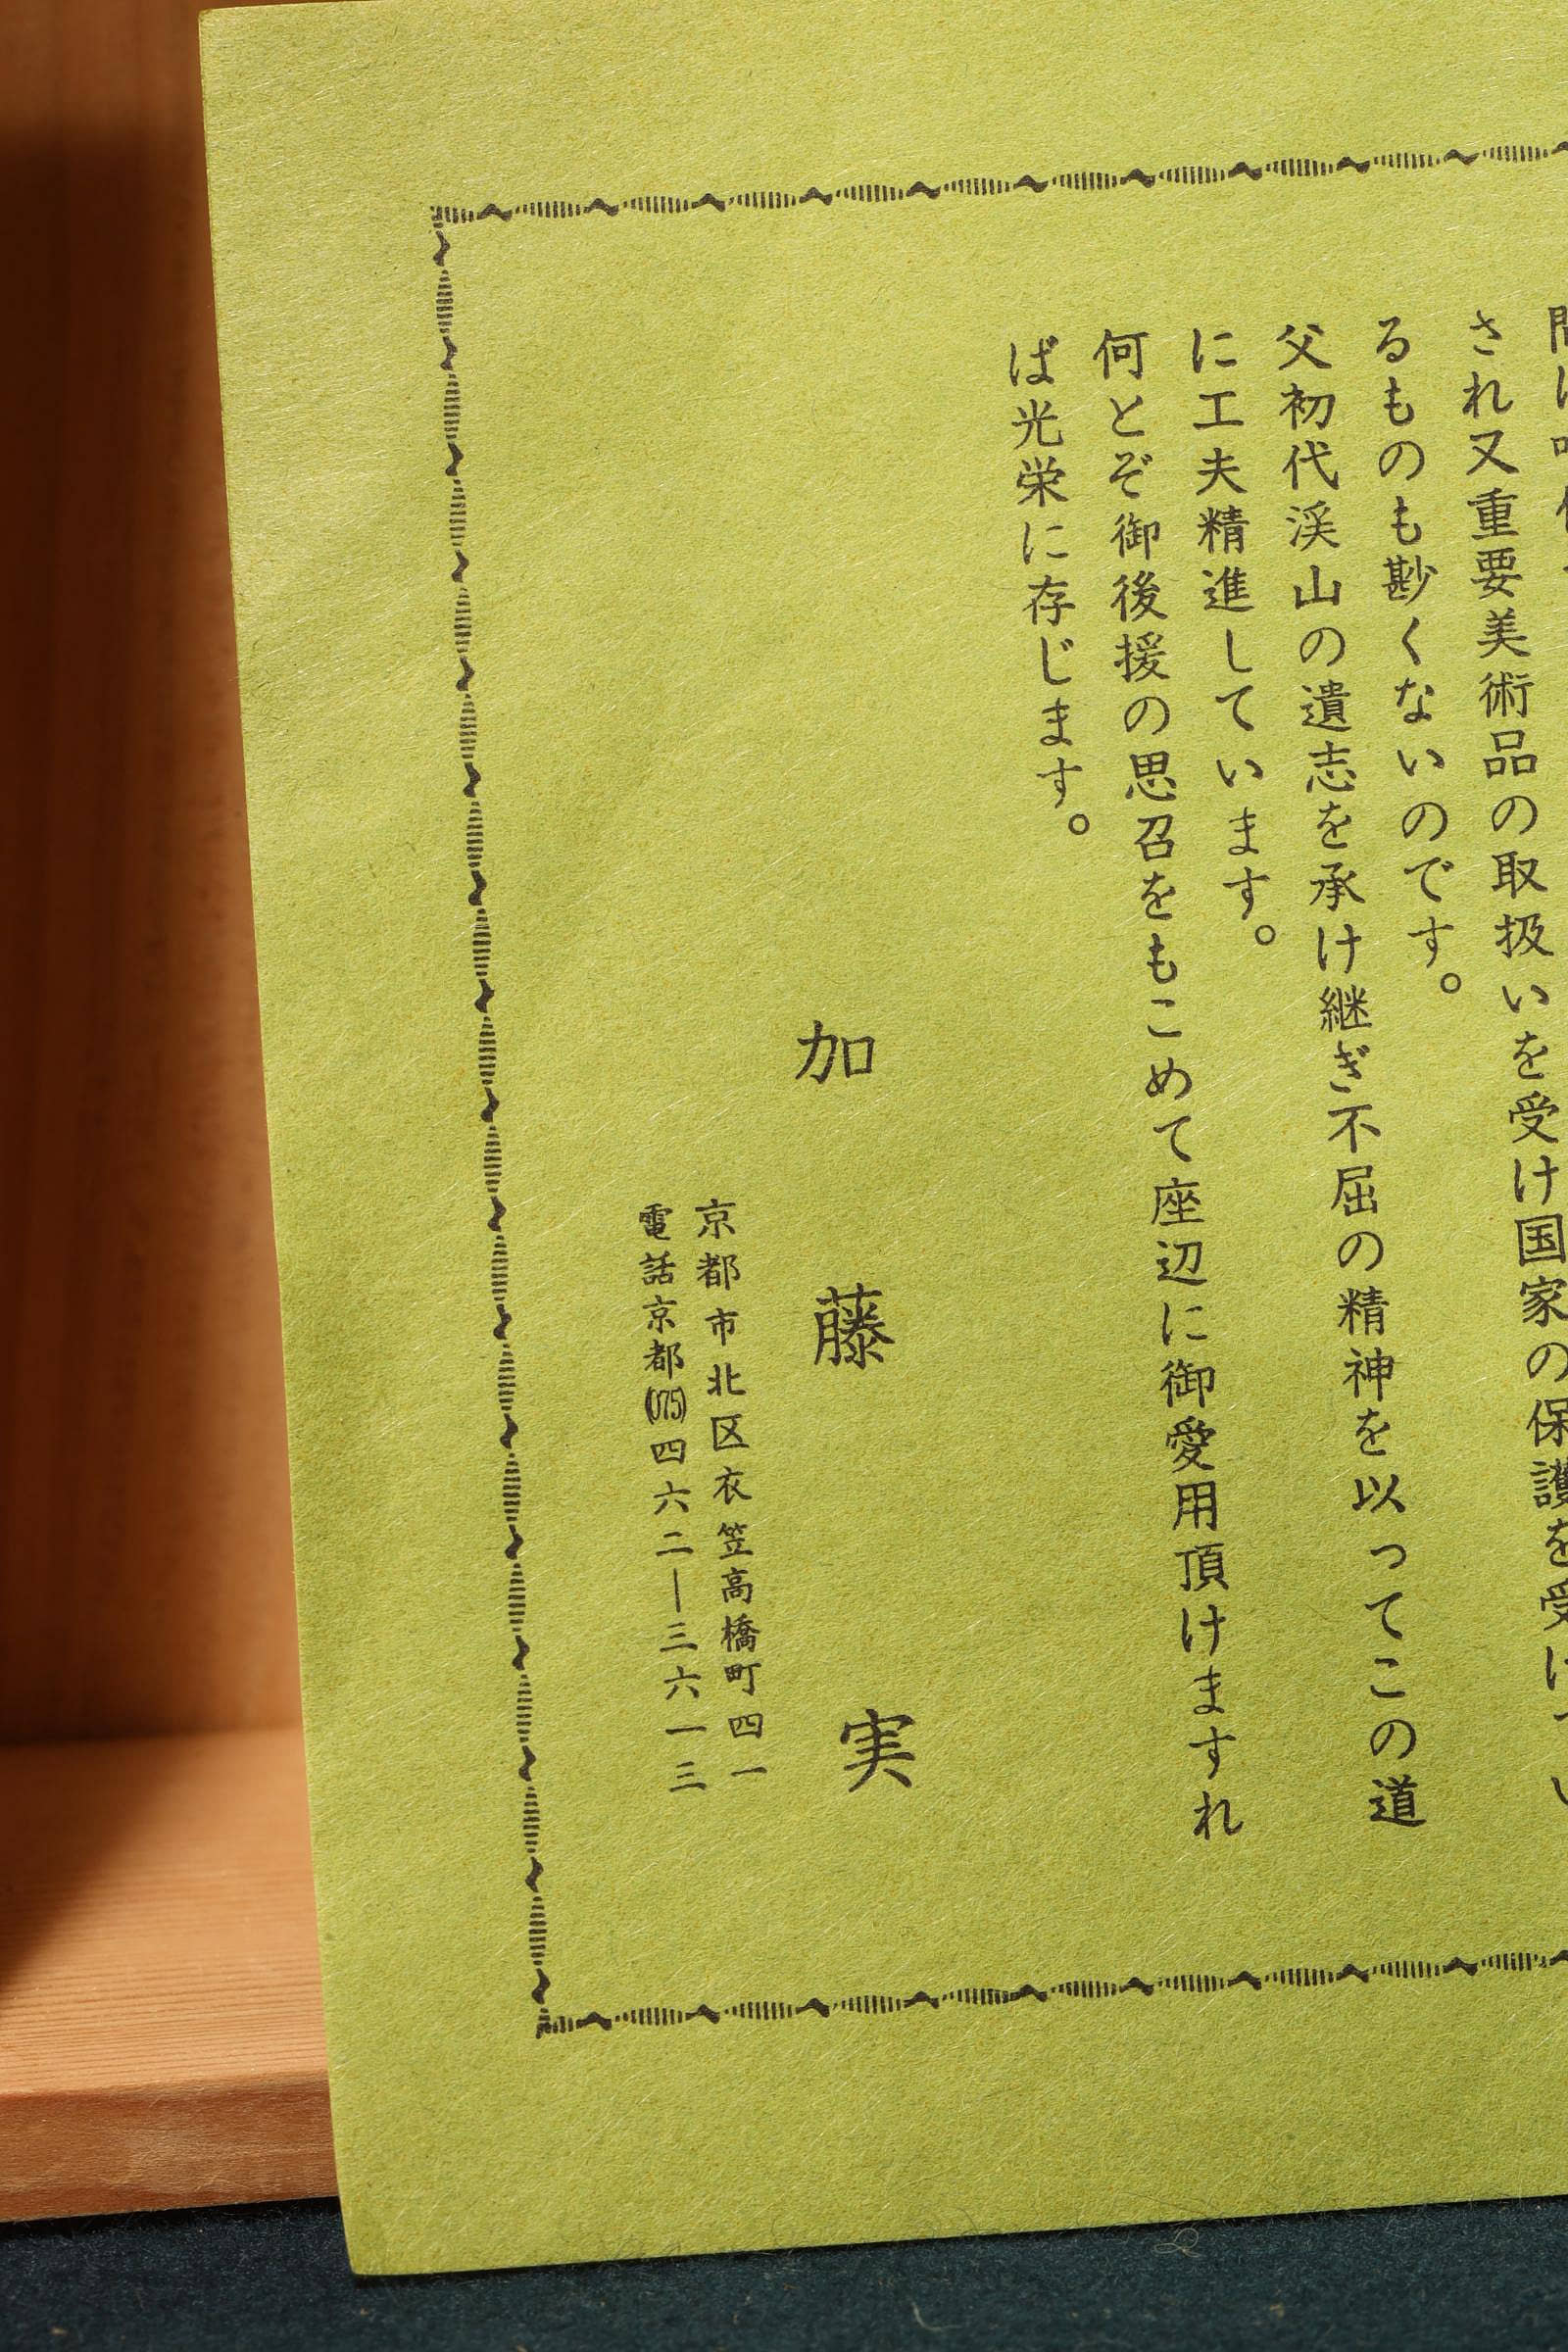 され又重要美術品の取扱いを受け国家の保護を受けてい
るものも尠くないのです。
父初代渓山の遺志を承け継ぎ不屈の精神を以ってこの道
に工夫精進しています。
何とぞ御後援の思召をもこめて座辺に御愛用頂けますれ
ば光栄に存じます。
加藤実
京都市北区衣笠高橋町四一
電話京都(075)四六二ー三六一三